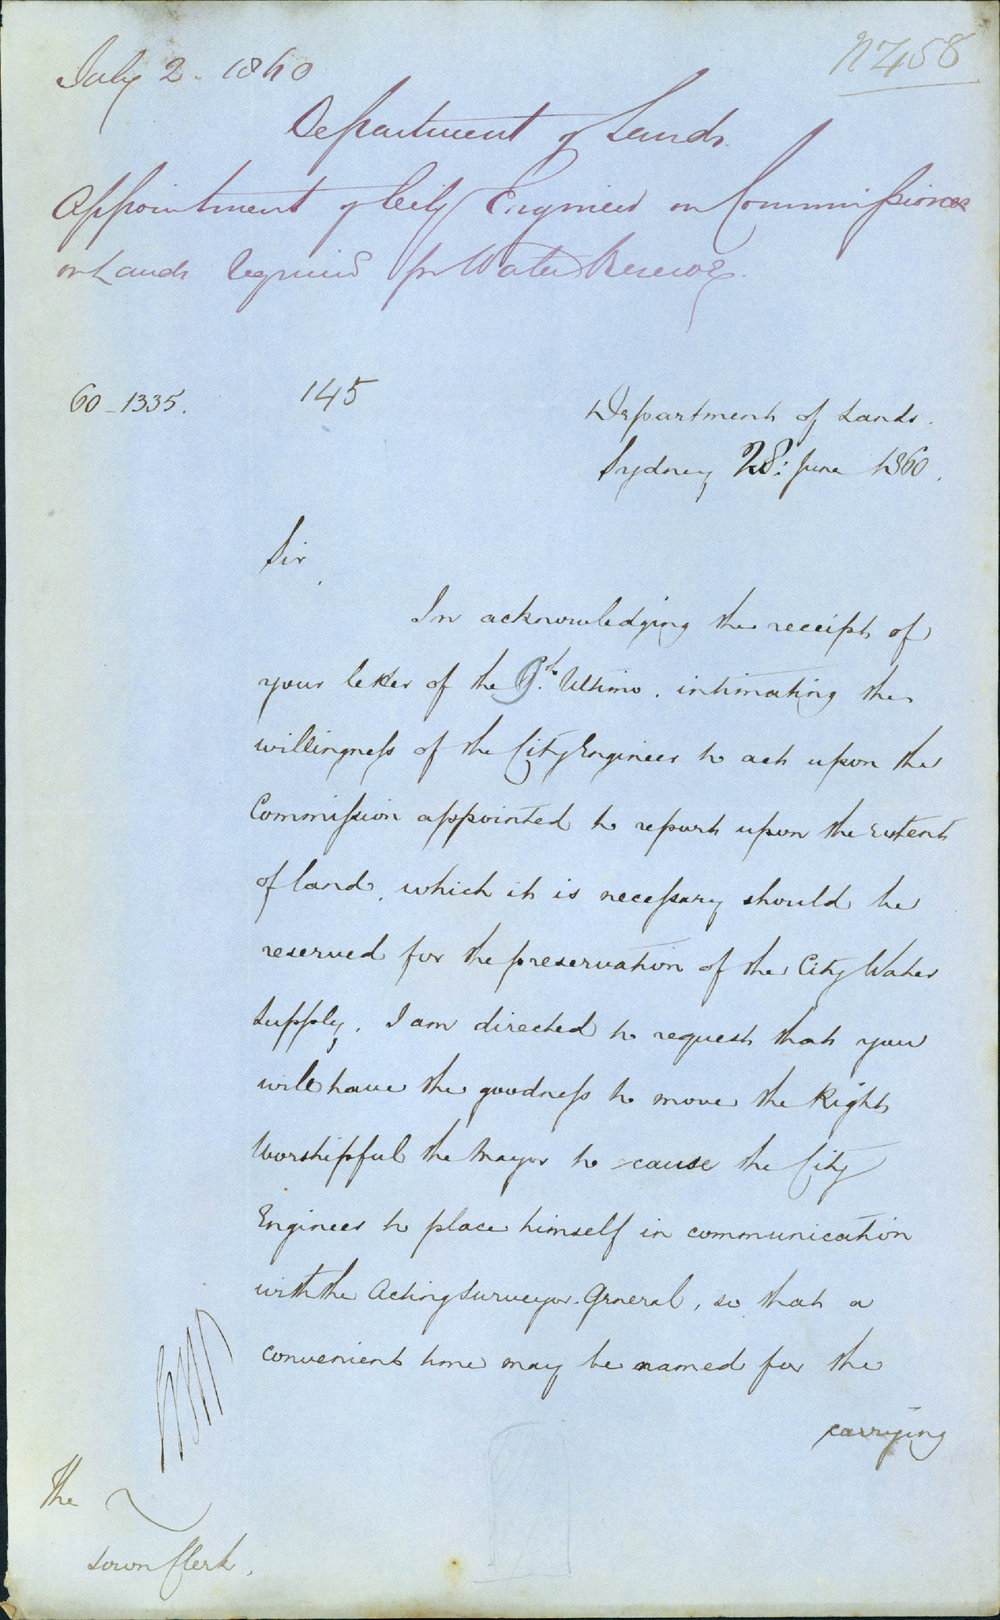 July 2. 1860
No 458
Department of Lands.
Appointment of City Engineer on Commission
on Lands required for Water Reserve.
60_1335.
145
Department of Lands.
Sydney 28: June 1860.
Sir,
In acknowledging the receipt of
your letter of the 9th. Ultimo. intimating the
willingness of the City Engineer to act upon the
Commission appointed to report upon the extent
of land, which it is necessary should be
reserved for the preservation of the City Water
Supply, I am directed to request that you
will have the goodness to move the Right
Worshipful the Mayor to cause the City
Engineer to place himself in communication
with the Acting Surveyor General, so that a
convenient time may be named for the
carrying
The
Town Clerk.